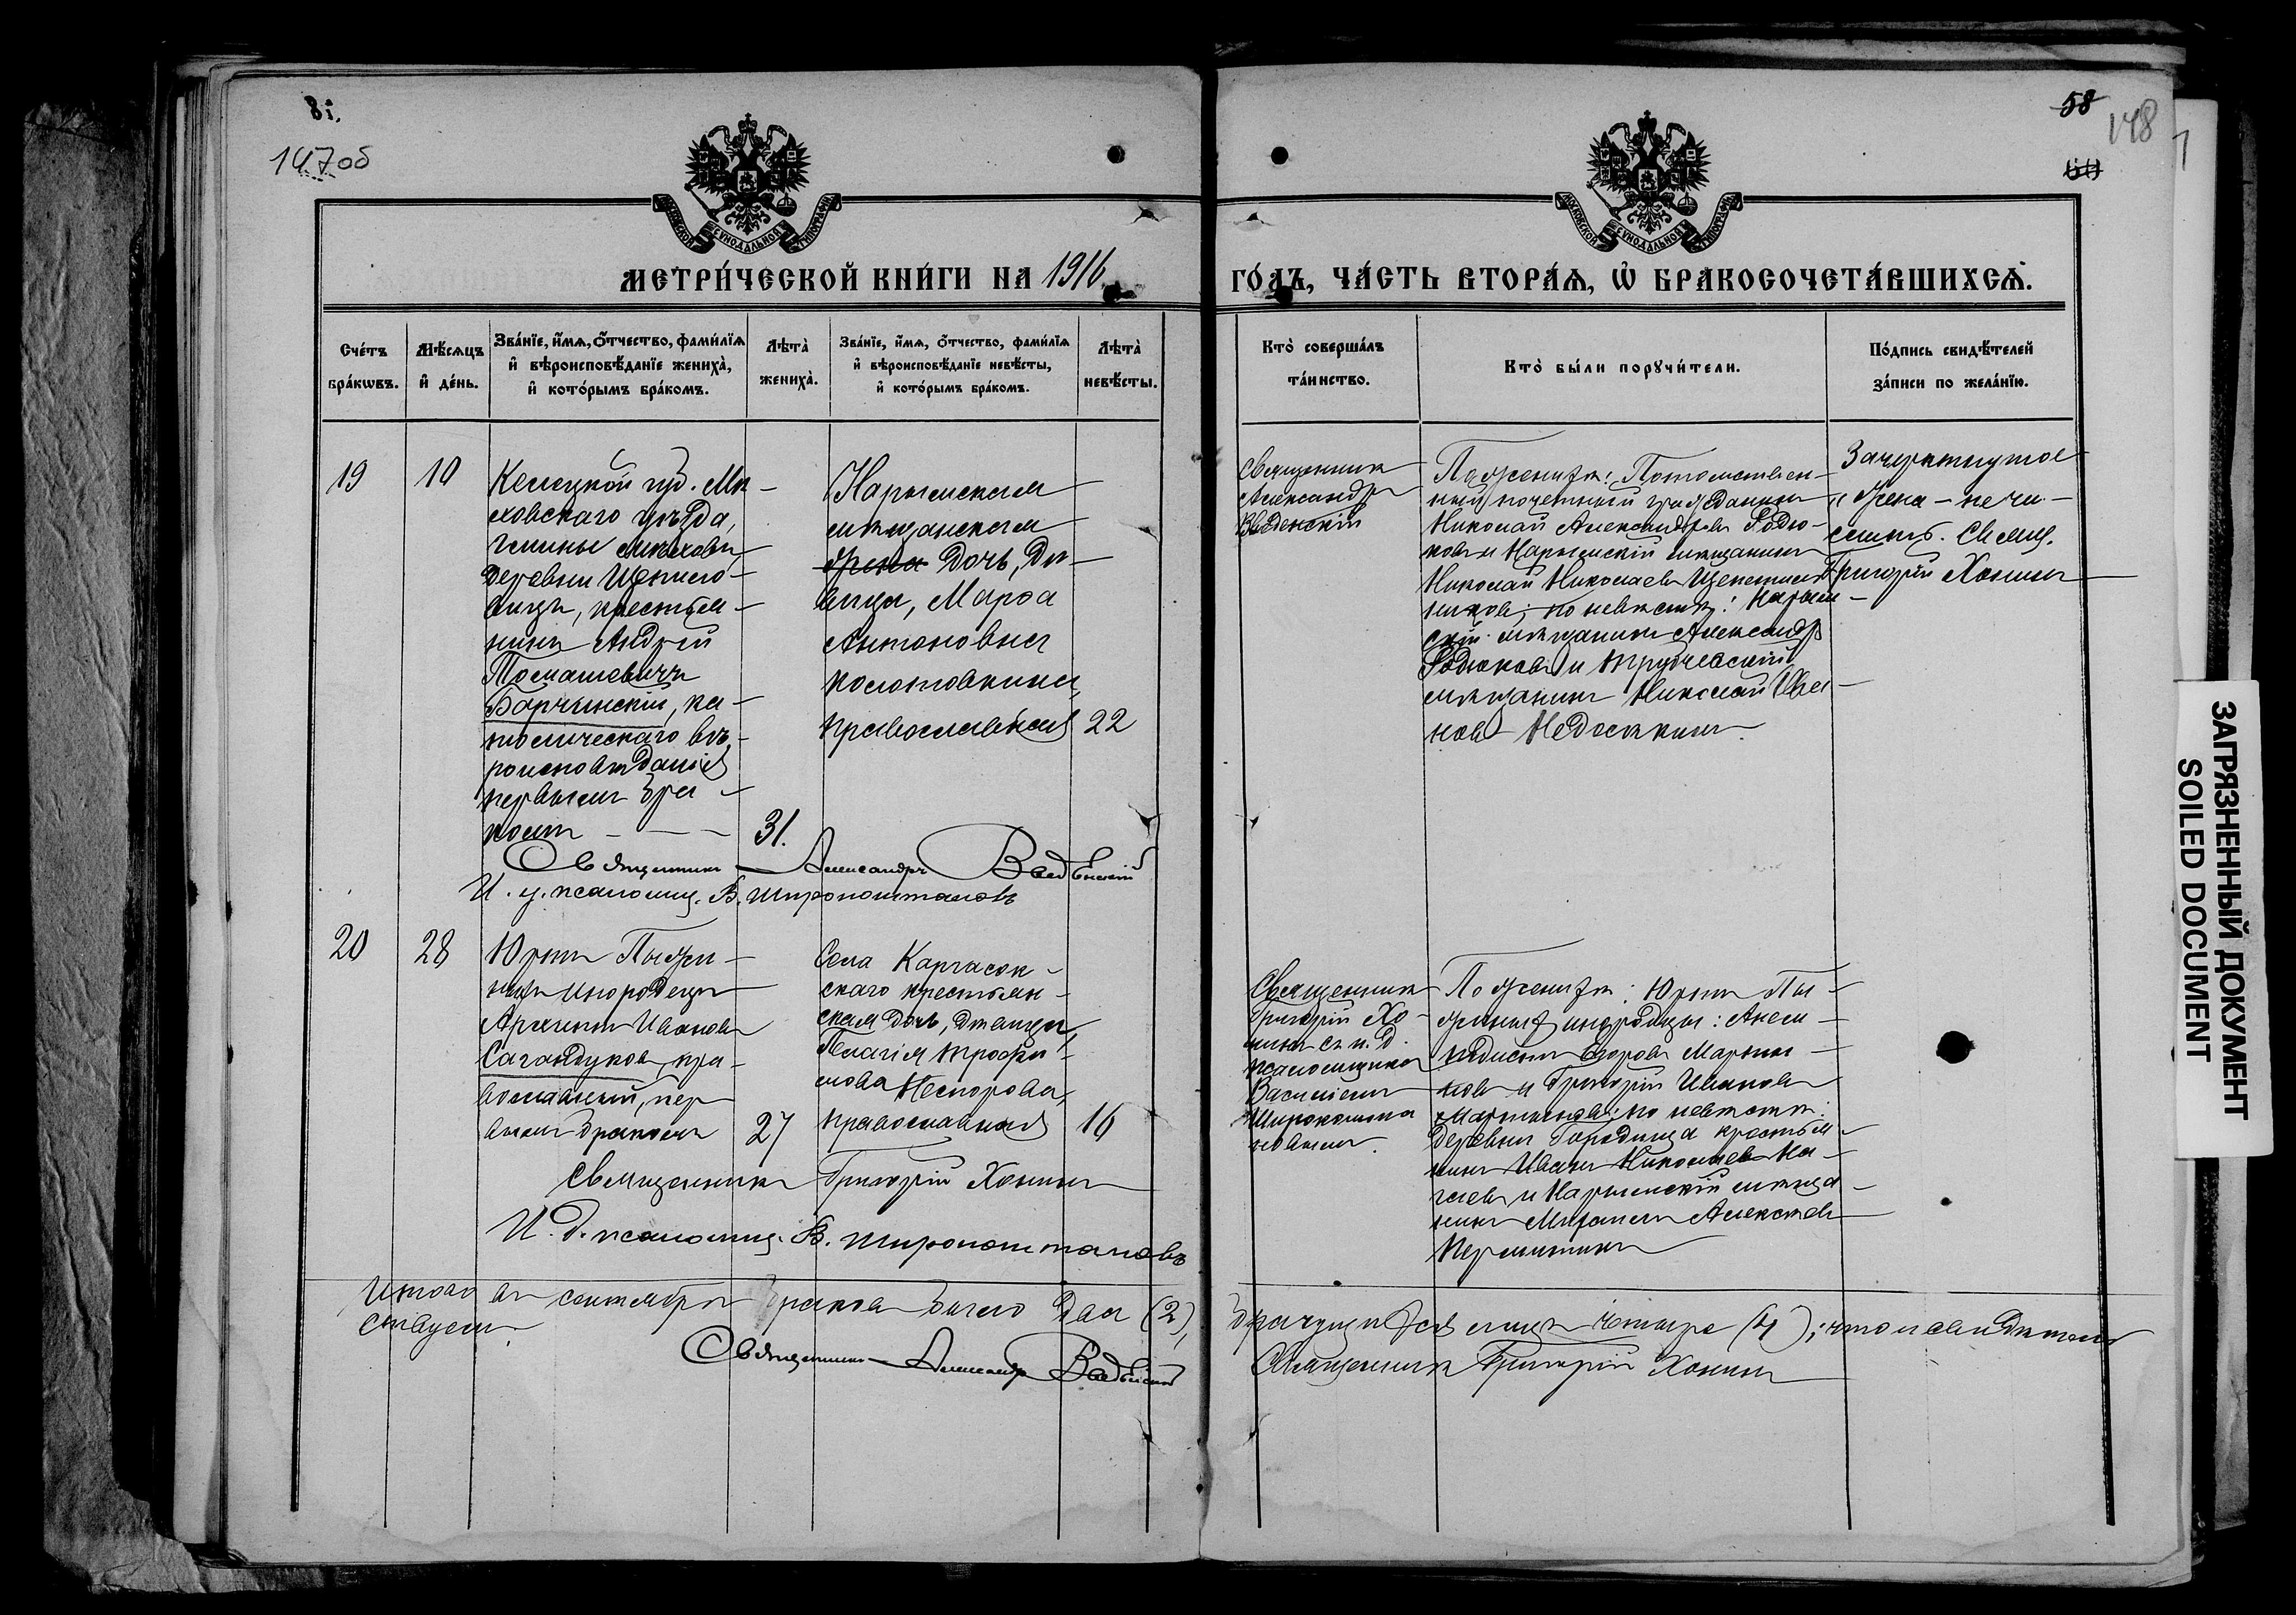 147об
58
148
МОСКОВСКОЙ СѴНОДАЛЬНОЙ ТИПОГРАФІИ
МОСКОВСКОЙ СѴНОДАЛЬНОЙ ТИПОГРАФІИ
МЕТРИ́ЧЕСКОЙ КНИ́ГИ НА 1916
ГО́ДЪ, ЧА́СТЬ ВТОРА́Ѧ, Ѡ҆ БРАКОСОЧЕТА́ВШИХСѦ.
Сче́тъ бра́кѡвъ.
Мѣ́сѧцъ и҆ де́нь.
Зва́нїе, и҆́мѧ, ѻ҆́тчество, фами́лїѧ и҆ вѣроисповѣ́данїе жениха̀, и҆ кото́рымъ бра́комъ.
Лѣ́та̀ жениха̀.
Зва́нїе, и҆́мѧ, ѻ҆́тчество, фами́лїѧ и҆ вѣроисповѣ́данїе невѣ́сты, и҆ кото́рымъ бра́комъ.
Лѣ́та̀ невѣ́сты.
Кто̀ соверша́лъ та́инство.
Кто̀ бы́ли порꙋчи́тели.
По́дпись свидѣ́телей за́писи по жела́нїю.
19
10
Келецкой губ. Мѣ-
ховскаго уѣзда,
гмины Мѣховъ,
деревни
крестья-
нинъ Андрей
Томашевичъ
Барчынскій, ка-
толическаго вѣ-
роисповѣданія
первымъ бра-
комъ
31.
Нарымская
мѣщанская
жена дочь, дѣ-
вица, Марѳа
Антоновна
Колотовкина,
православная
22
Священникъ
Александръ
Введенскій
По женихѣ: Потомствен-
ный почетный гражданинъ
Николай Александровъ Родю-
ковъ и Нарымскій мѣщанинъ
Николай Николаевъ
по невѣстѣ: Нарым-
скій мѣщанинъ Александръ
Родюковъ и Трубчевскій
мѣщанинъ Николай Ива-
новъ Недосѣкинъ.
Зачеркнутое
„жена – не чи-
слить. Свящ.
Григорій Хонинъ
Священникъ Александръ Введенскій
И. д. псаломщ. В. Широкоштановъ
20
28
Юртъ Пыжи-
ныхъ инородецъ
Архипъ Ивановъ
Сагандуковъ, пра-
вославный, пер-
вымъ бракомъ
27
Села Каргасок-
скаго крестьян-
ская дочь, дѣвица,
Пелагія Трофи-
мова Несторова,
православная
16
Священникъ
Григорій Хо-
нинъ съ и. д.
псаломщика
Василіемъ
Широкошта-
новымъ.
По женихѣ: Юртъ Пы-
жиныхъ инородцы: Анем-
подистъ Егоровъ Мартын-
ковъ и Григорій Ивановъ
Мартынковъ; по невѣстѣ:
деревни Городища крестья-
нинъ Иванъ Николаевъ На-
гаевъ и Нарымскій мѣща-
нинъ Михаилъ Алексѣевъ
Пермитинъ
Священникъ Григорій Хонинъ
И. д. псаломщ. В. Широкоштановъ
Итого въ сентябрѣ браковъ было два (2), брачущихся лицъ четыре (4); что и свидѣтель-
ствуемъ.
Священникъ Александръ Введенскій
Священникъ Григорій Хонинъ
ЗАГРЯЗНЕННЫЙ ДОКУМЕНТ
SOILED DOCUMENT